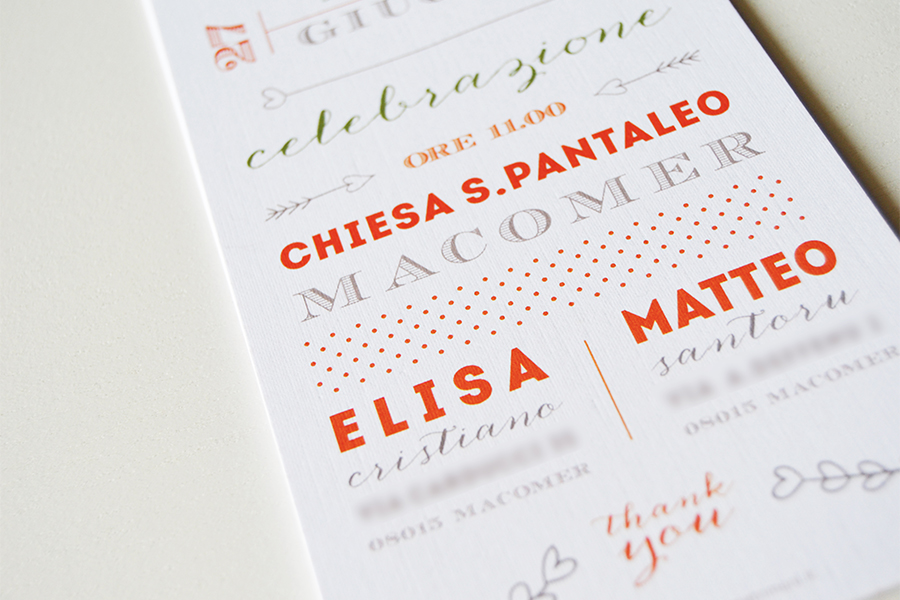 27
celebrazione
ORE 11.00
CHIESA S.PANTALEO
MACOMER
ELISA
cristiano
08015 MACOMER
MATTEO
santoru
08015 MACOMER
thank
you